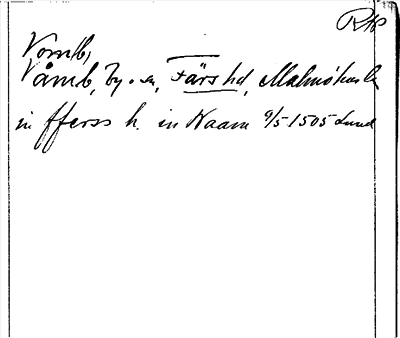 RAP
Vomb,
Våmb, by o. sn, Färs hd, Malmöhus l.
in fferss h. in Naam 9/5-1505 Lund